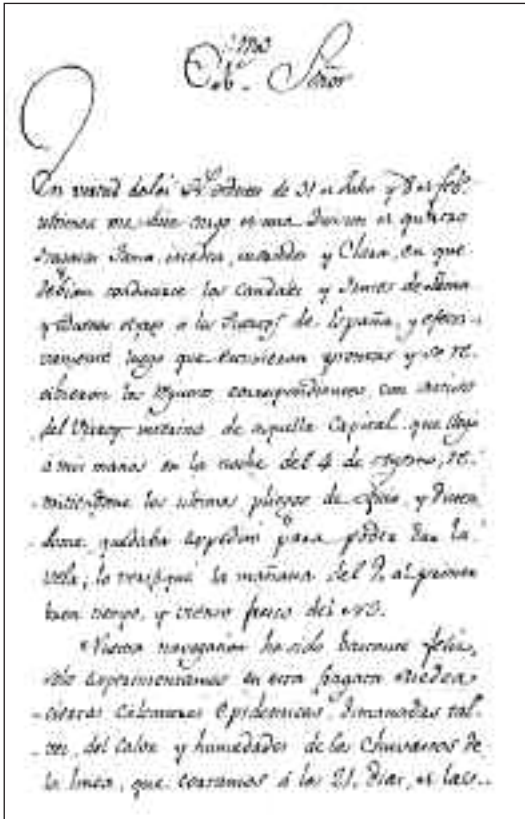 Exmo. Señor
En virtud de las Rs. ordenes de 31 de Julio y 8 de feb.o
ultimos me hice cargo de una de quatro
fragatas Fama, Medea, Mercedes y Clara, en que
debian conducirse los caudales y frutos de Lima
y Buenos ayres a los Puertos de España, y efecti-
vamente luego que estuvieron prontas y se re-
cibieron los correspondientes, con
del Virrey de aquella Capital que llegó
á mis manos en la noche del 4 de Agosto, re-
-mitiendome los ultimos pliegos de oficio, y dicien
dome quedaba expedito para poder dar la
vela; lo verifiqué la mañana del 9, al primer
buen tiempo, y viento fresco del
Nuestra navegacion ha sido bastante feliz,
solo experimentamos en esta fragata Medea
-ciertas calenturas epidemicas, dimanadas tal-
-vez, del calor y humedades de los chuvascos de
la linea, que cortamos á los 21 dias,